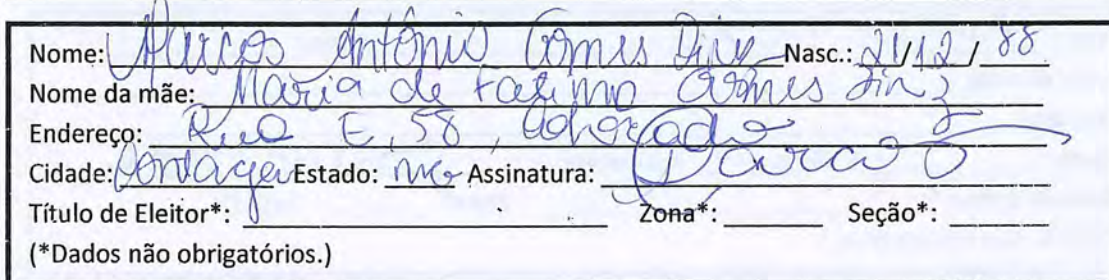 Nome: Marcos Antônio Gomes Diniz Nasc.: 21/12/88
Nome da mãe: Maria de Fatima Gomes Diniz
Endereço: Rua E, 58,
Cidade: Contagem Estado: MG Assinatura: Marcos
Título de Eleitor*: Zona*: Seção*:
(*Dados não obrigatórios.)